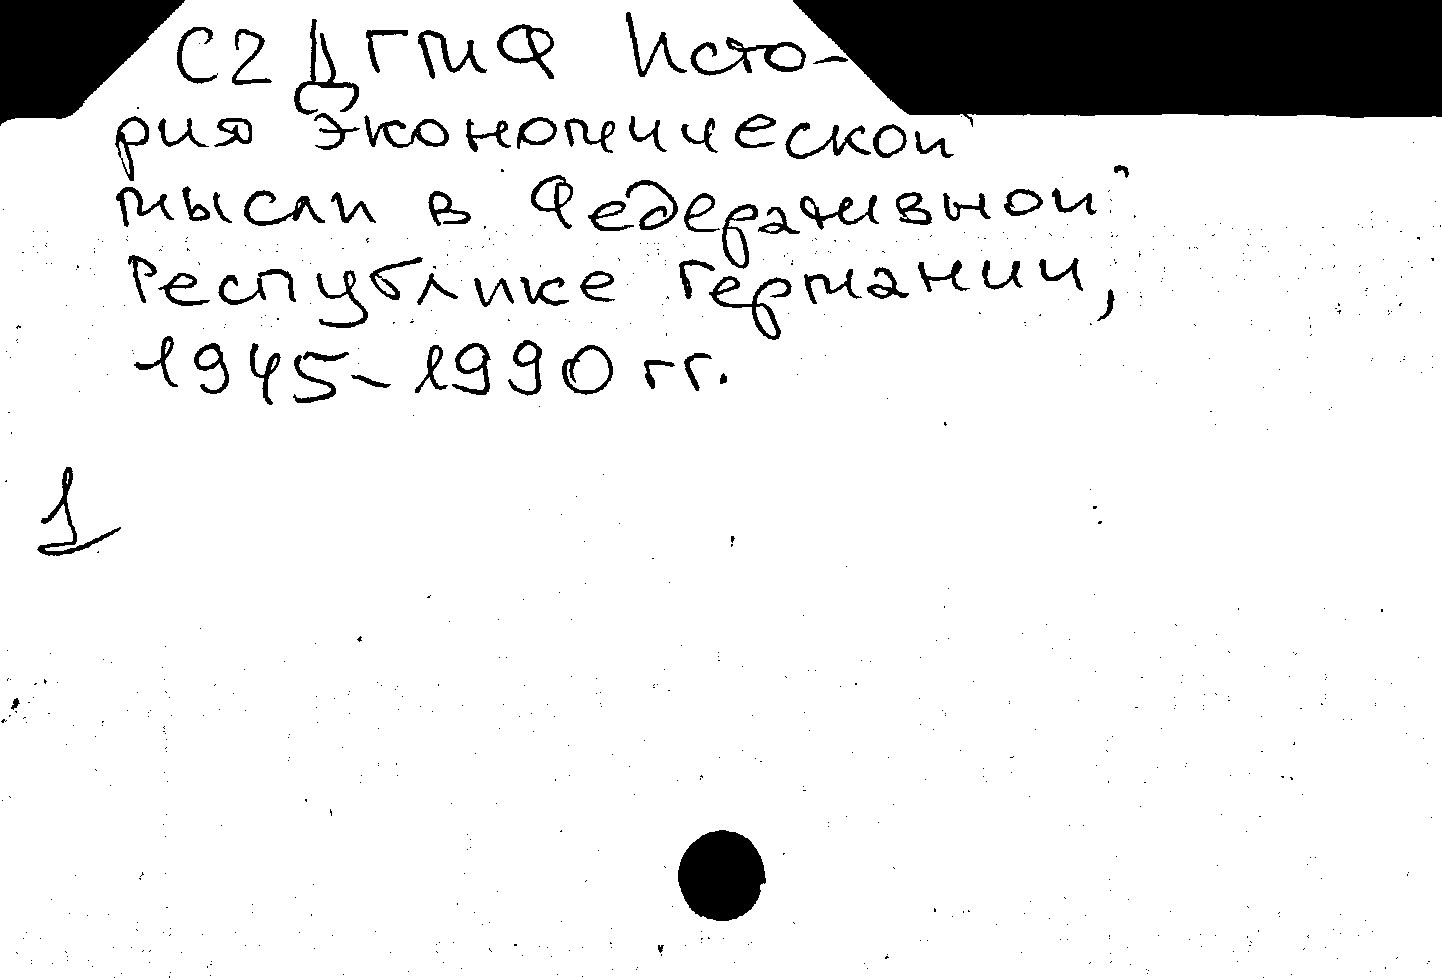 С2 ДГПИФ Исто-
рия экономической
мысли в Федеративной
Республике Германии,
1945-1990 гг.
1